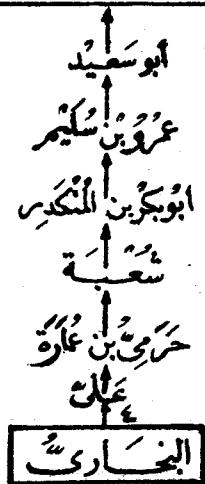 أبو سَعِيْد
عَمْرُو بْن سُلَيْم
ابُو بَكْر بن الْمُنْكَدِر
شُعْبَة
حَرَمِيُّ بن عُمَارَة
عَلِيّ
٤
البُخَارِيّ